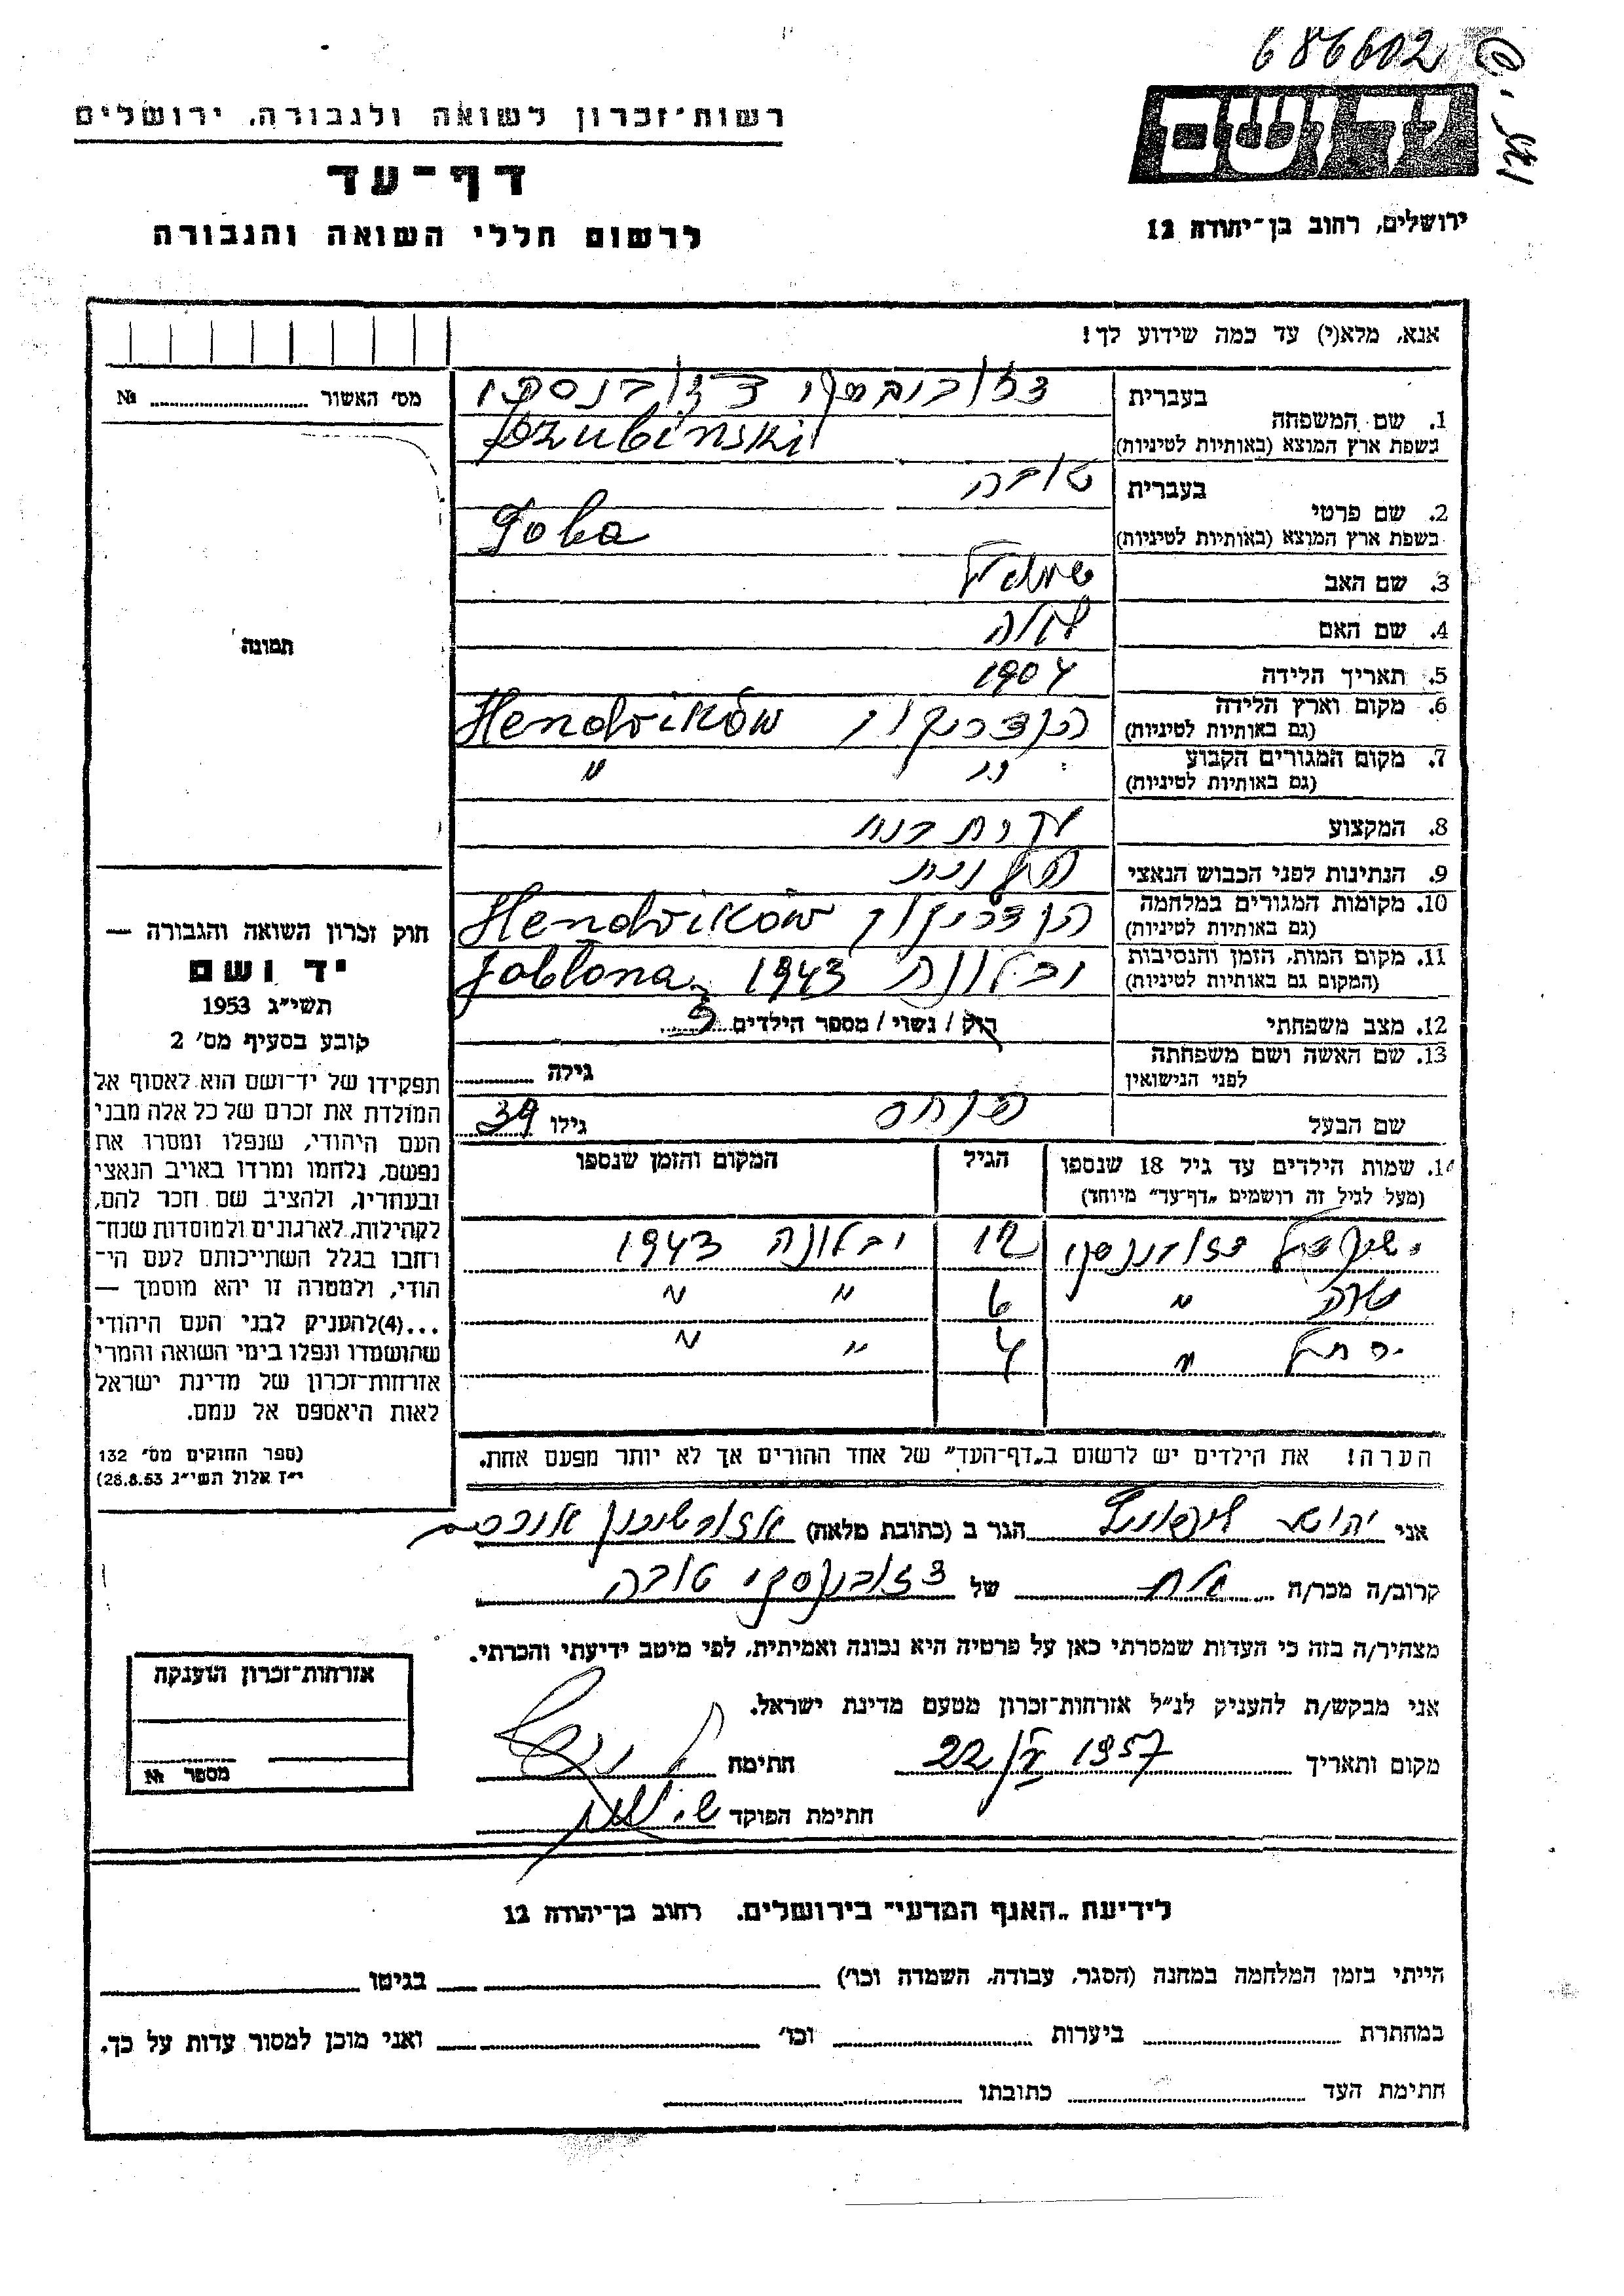 686602
רשות־זכרון לשואה ולגבורה, ירושלים
דף־עד
לרשום חללי השואה והגבורה
ידושם
ירושלים, רחוב בן־יהודה 12
אנא, מלא(י) עד כמה שידוע לך!
מס׳ האשור № 
1. שם המשפחה בעברית דזובנסקי
בשפת ארץ המוצא (באותיות לטיניות) Dzubinski
2. שם פרטי בעברית טובה
בשפת ארץ המוצא (באותיות לטיניות) Toba
3. שם האב שמואל
4. שם האם
5. תאריך הלידה 1904
6. מקום וארץ הלידה (גם באותיות לטיניות) הנדריקוו Hendrików
7. מקום המגורים הקבוע (גם באותיות לטיניות) " "
8. המקצוע עקרת בית
9. הנתינות לפני הכבוש הנאצי פולנית
10. מקומות המגורים במלחמה (גם באותיות לטיניות) הנדריקוו Hendrików
11. מקום המות, הזמן והנסיבות (המקום גם באותיות לטיניות) יבלונה 1943 Jablona
12. מצב משפחתי רווק / נשוי / מספר הילדים 3
13. שם האשה ושם משפחתה לפני הנישואין גילה
שם הבעל פנחס גילו 39
14. שמות הילדים עד גיל 18 שנספו הגיל המקום והזמן שנספו
(מעל לגיל זה רושמים „דף־עד" מיוחד)
דזובנסקי 12 יבלונה 1943
שרה " 6 " "
רחל " 4 " "
הערה! את הילדים יש לרשום ב„דף־העד" של אחד ההורים אך לא יותר מפעם אחת.
תמונה
חוק זכרון השואה והגבורה —
יד ושם
תשי״ג 1953
קובע בסעיף מס׳ 2
תפקידו של יד־ושם הוא לאסוף אל
המולדת את זכרם של כל אלה מבני
העם היהודי, שנפלו ומסרו את
נפשם, נלחמו ומרדו באויב הנאצי
ובעוזריו, ולהציב שם וזכר להם,
לקהילות, לארגונים ולמוסדות שנח־
רחבו בגלל השתייכותם לעם הי־
הודי, ולמטרה זו יהא מוסמך —
...(4)להעניק לבני העם היהודי
שהושמדו ונפלו בימי השואה והמרי
אזרחות־זכרון של מדינת ישראל
לאות היאספם אל עמם.
(ספר החוקים מס׳ 132
י״ז אלול תשי״ג 28.8.53)
אני יהושע הגר ב (כתובת מלאה)
קרוב/ה מכר/ה אח של דזובנסקי טובה
מצהיר/ה בזה כי העדות שמסרתי כאן על פרטיה היא נכונה ואמיתית, לפי מיטב ידיעתי והכרתי.
אני מבקש/ת להעניק לנ״ל אזרחות־זכרון מטעם מדינת ישראל.
מקום ותאריך 22 1957 חתימה
חתימת הפוקד
אזרחות־זכרון הוענקה
מספר №
לידיעת „האגף המדעי" בירושלים, רחוב בן־יהודה 12
הייתי בזמן המלחמה במחנה (הסגר, עבודה, השמדה וכו׳) בגיטו
במחתרת ביערות וכו׳ ואני מוכן למסור עדות על כך.
חתימת העד כתובתו